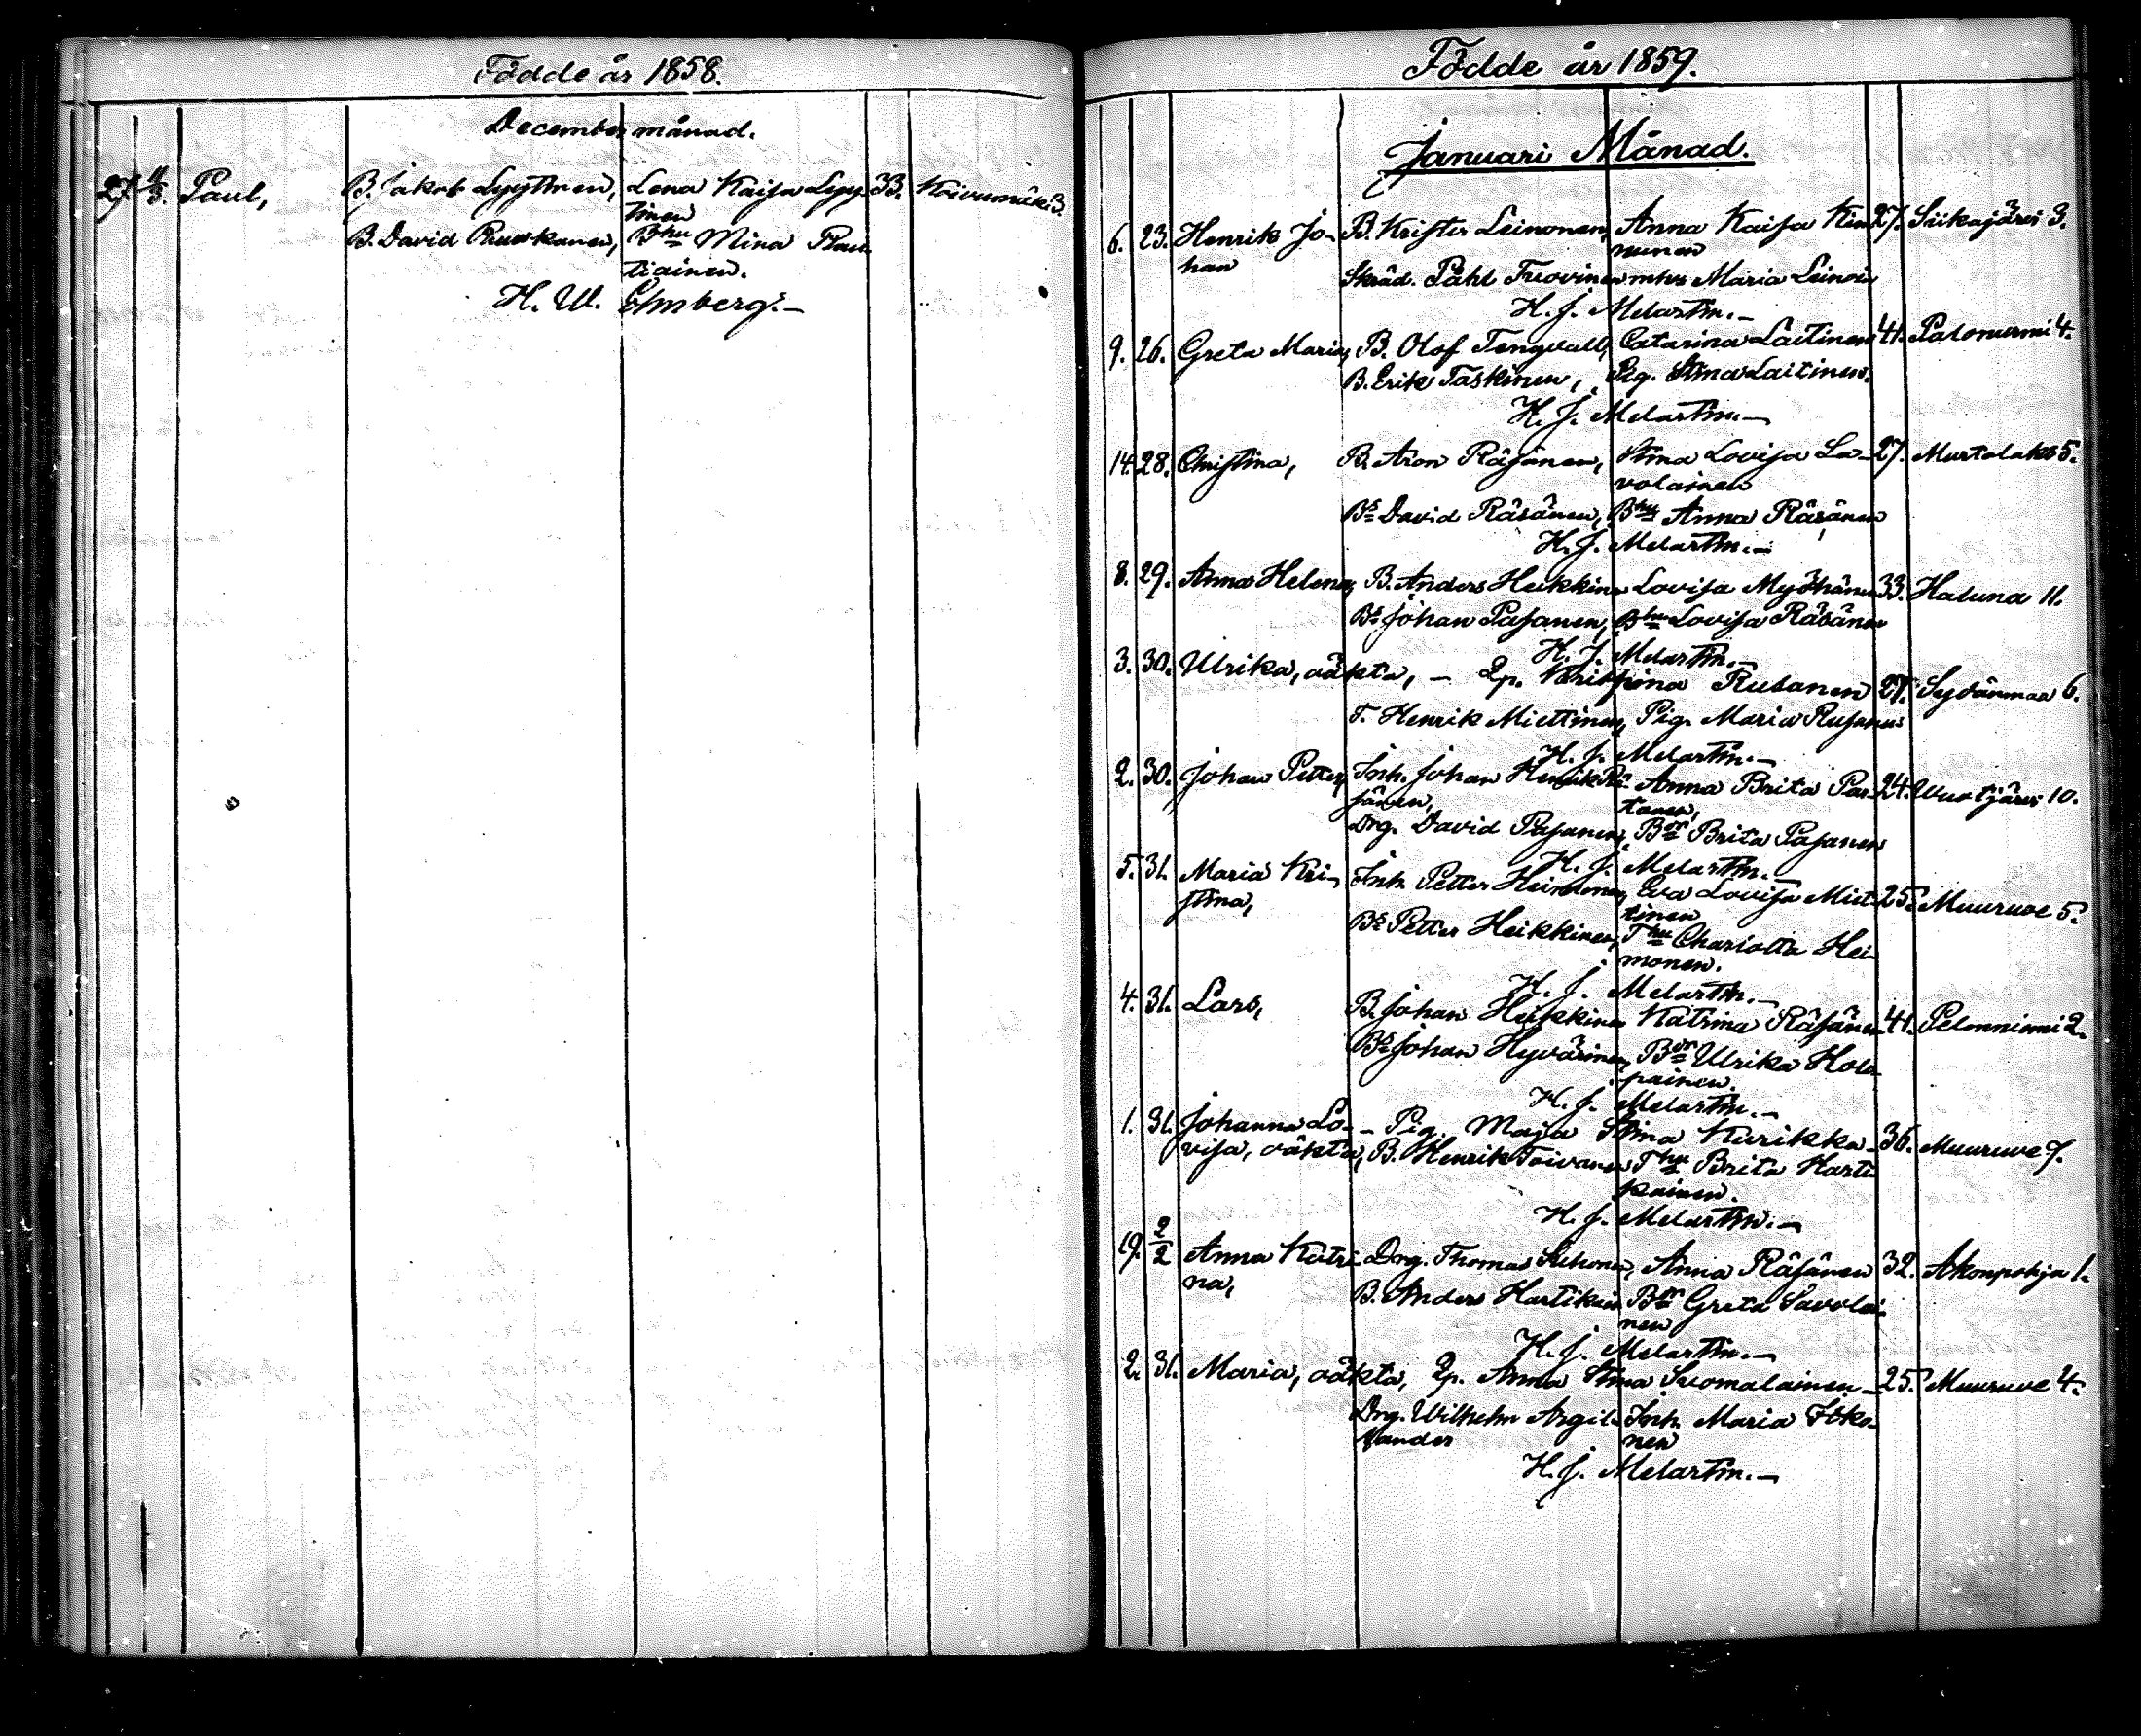 Födde år 1858.
December månad.
27. Paul, B. Jakob Lyytinen, Lena Kaisa Lyy- 33. Koivumäki 3.
tinen
B. David Ruuskanen, Bhu Mina Rau
tiainen.
H. W. Elmberg.-
Födde år 1859.
Januari Månad.
6. 23. Henrik Jo- B. Krister Leinonen, Anna Kaisa Kin 27. Siikajärvi 3.
han nunen
Skräd. Påhl Tuovinen mhu Maria Leinoin
H. J. Melartin.-
9. 26. Greta Maria, B. Olof Tengvall, Catarina Laitinen 41. Palonurmi 4.
B. Erik Taskinen, Pig. Stina Laitinen.
H. J. Melartin.-
14. 28. Christina, B. Aron Räsänen, Stina Lovisa Sa- 27. Murtolaks 5.
volainen
Bs David Räsänen, Bhu Anna Räsänen
H. J. Melartin.-
8. 29. Anna Helena, B. Anders Heikkinen Lovisa Myöhänen 33. Haluna 11.
Bs Johan Pasanen, Bhu Lovisa Räsänen
H. J. Melartin.-
3. 30. Ulrika, oäkta, - Qp. Kristina Rusanen 27. Sydänmaa 6.
T. Henrik Miettinen, Pig. Maria Rusanen
H. J. Melartin.-
2. 30. Johan Petter, Inh. Johan Henrik Rä- Anna Brita Par- 24. Vuotjärvi 10.
sänen, tanen,
Drg. David Pasanen, Bdr Brita Pasanen
H. J. Melartin.
5. 31. Maria Kri- Inh. Petter Heimonen, Eva Lovisa Miet- 25. Muuruve 5.
stina, tinen
Bs Petter Heikkinen, Thu Charlotta Hei-
monen.
H. J. Melartin.-
4. 31. Lars, B. Johan Heikkinen Katrina Räsänen 41. Pelonniemi 2.
Bs Johan Hyvärinen, Bdr Ulrika Holo-
painen.
H. J. Melartin.-
1. 31. Johanna Lo- - Pig. Maja Stina Kurikka- 36. Muuruve 9.
visa, oäkta, B. Henrik Toivanen Thu Brita Harti
kainen.
H. J. Melartin.-
19. 2/2 Anna Katri- Drg. Thomas Sihonen, Anna Räsänen 32. Akonpohja 1.
na,
B. Anders Hartikain Bdr Greta Savolai-
nen
H. J. Melartin.-
2. 31. Maria, oäkta, Qp. Anna Stina Suomalainen- 25. Muuruve 4.
Drg. Wilhelm Argil- Inh. Maria Jöko-
lander nen
H. J. Melartin.-